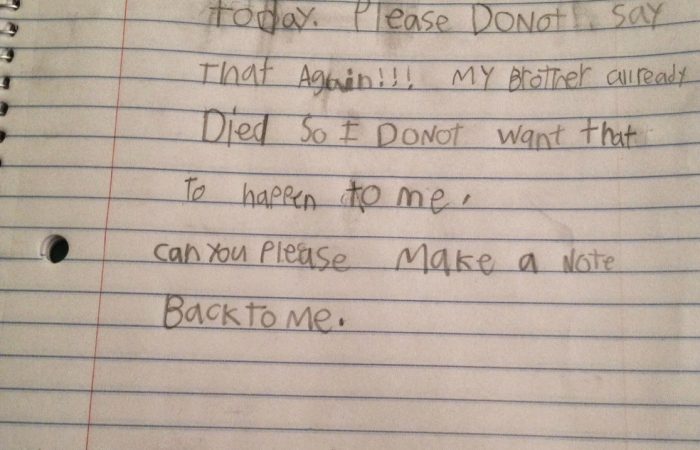 today. Please DONOt. say
that Again!!! MY BrotHer allready
Died So I DONOT want that
to happen to me.
can You Please Make a Note
Back to Me.